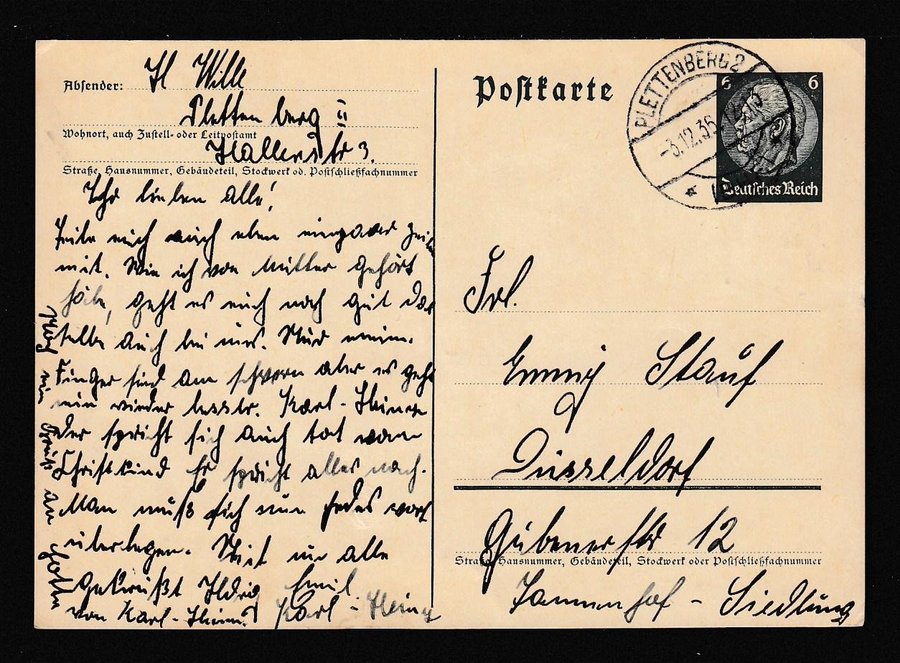 Absender: H Wille
Plettenberg II
Wohnort, auch Zustell- oder Leitpostamt
Hallerstr 3.
Straße, Hausnummer, Gebäudeteil, Stockwerk od. Postschließfachnummer
Ihr lieben alle!
Teile euch auch eben ein paar Zeilen
mit. Wie ich von Mutter gehört
habe, geht es euch noch gut das
selbe auch bei uns. Nur mein
Finger sind am aber es geht
nun wieder besser. Karl-Heinz
der spricht sich auch tot vom
Christkind Er spricht alles nach.
Man muß sich nun jedes wort
überlegen. Seit nur alle
gekrüßt Emil
von Karl-Heinz Karl-Heinz
Postkarte
PLETTENBERG 2
-3.12.36
6 6
Deutsches Reich
Frl.
Emmy Stauf
Düsseldorf
Gubenerstr 12
Straße, Hausnummer, Gebäudeteil, Stockwerk oder Postschließfachnummer
Tannenhof-Siedlung